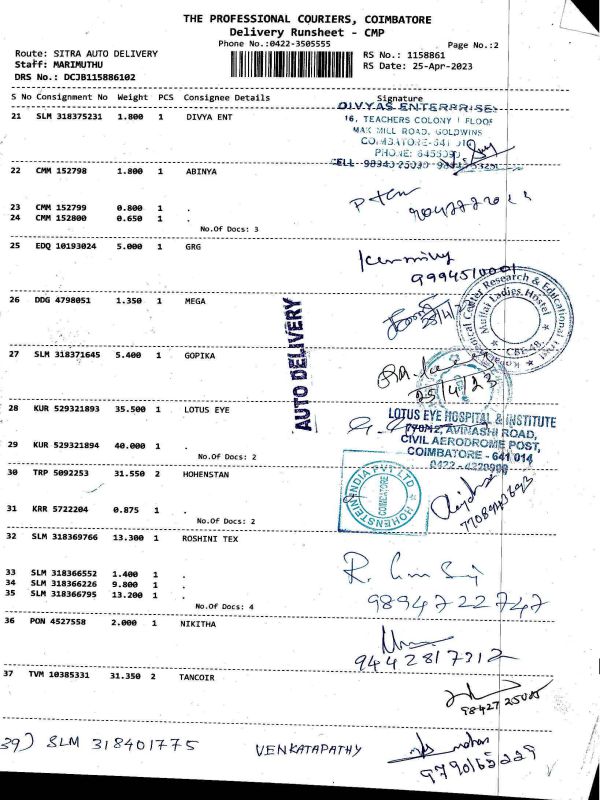 THE PROFESSIONAL COURIERS, COIMBATORE
Delivery Runsheet - CMP
Phone No.:0422-3505555
Page No.:2
Route: SITRA AUTO DELIVERY
Staff: MARIMUTHU
DRS No.: DCJB115886102
RS No.: 1158861
RS Date: 25-Apr-2023
S No Consignment No Weight PCS Consignee Details Signature
21 SLM 318375231 1.800 1 DIVYA ENT
DIVYAS ENTERPRISES
16, TEACHERS COLONY I FLOOR
MAX MILL ROAD, GOLDWINS
COIMBATORE-641 014
PHONE:
CELL
22 CMM 152798 1.800 1 ABINYA
23 CMM 152799 0.800 1 .
24 CMM 152800 0.650 1 .
No.Of Docs: 3
25 EDQ 10193024 5.000 1 GRG
26 DDG 4798051 1.350 1 MEGA
25/4/23
Research & Educational Trust
Mullai Ladies Hostel
AUTO DELIVERY
27 SLM 318371645 5.400 1 GOPIKA
25/4/23
28 KUR 529321893 35.500 1 LOTUS EYE
LOTUS EYE HOSPITAL & INSTITUTE
770/12, AVINASHI ROAD,
CIVIL AERODROME POST,
COIMBATORE - 641 014
0422 - 4229999
29 KUR 529321894 40.000 1 .
No.Of Docs: 2
30 TRP 5092253 31.550 2 HOHENSTAN
HOHENSTEIN INDIA PVT LTD
COIMBATORE
31 KRR 5722204 0.875 1 .
No.Of Docs: 2
32 SLM 318369766 13.300 1 ROSHINI TEX
33 SLM 318366552 1.400 1 .
34 SLM 318366226 9.800 1 .
35 SLM 318366795 13.200 1 .
No.Of Docs: 4
9894722747
36 PON 4527558 2.000 1 NIKITHA
9442817312
37 TVM 10385331 31.350 2 TANCOIR
39) SLM 318401775 VENKATAPATHY
9790165229